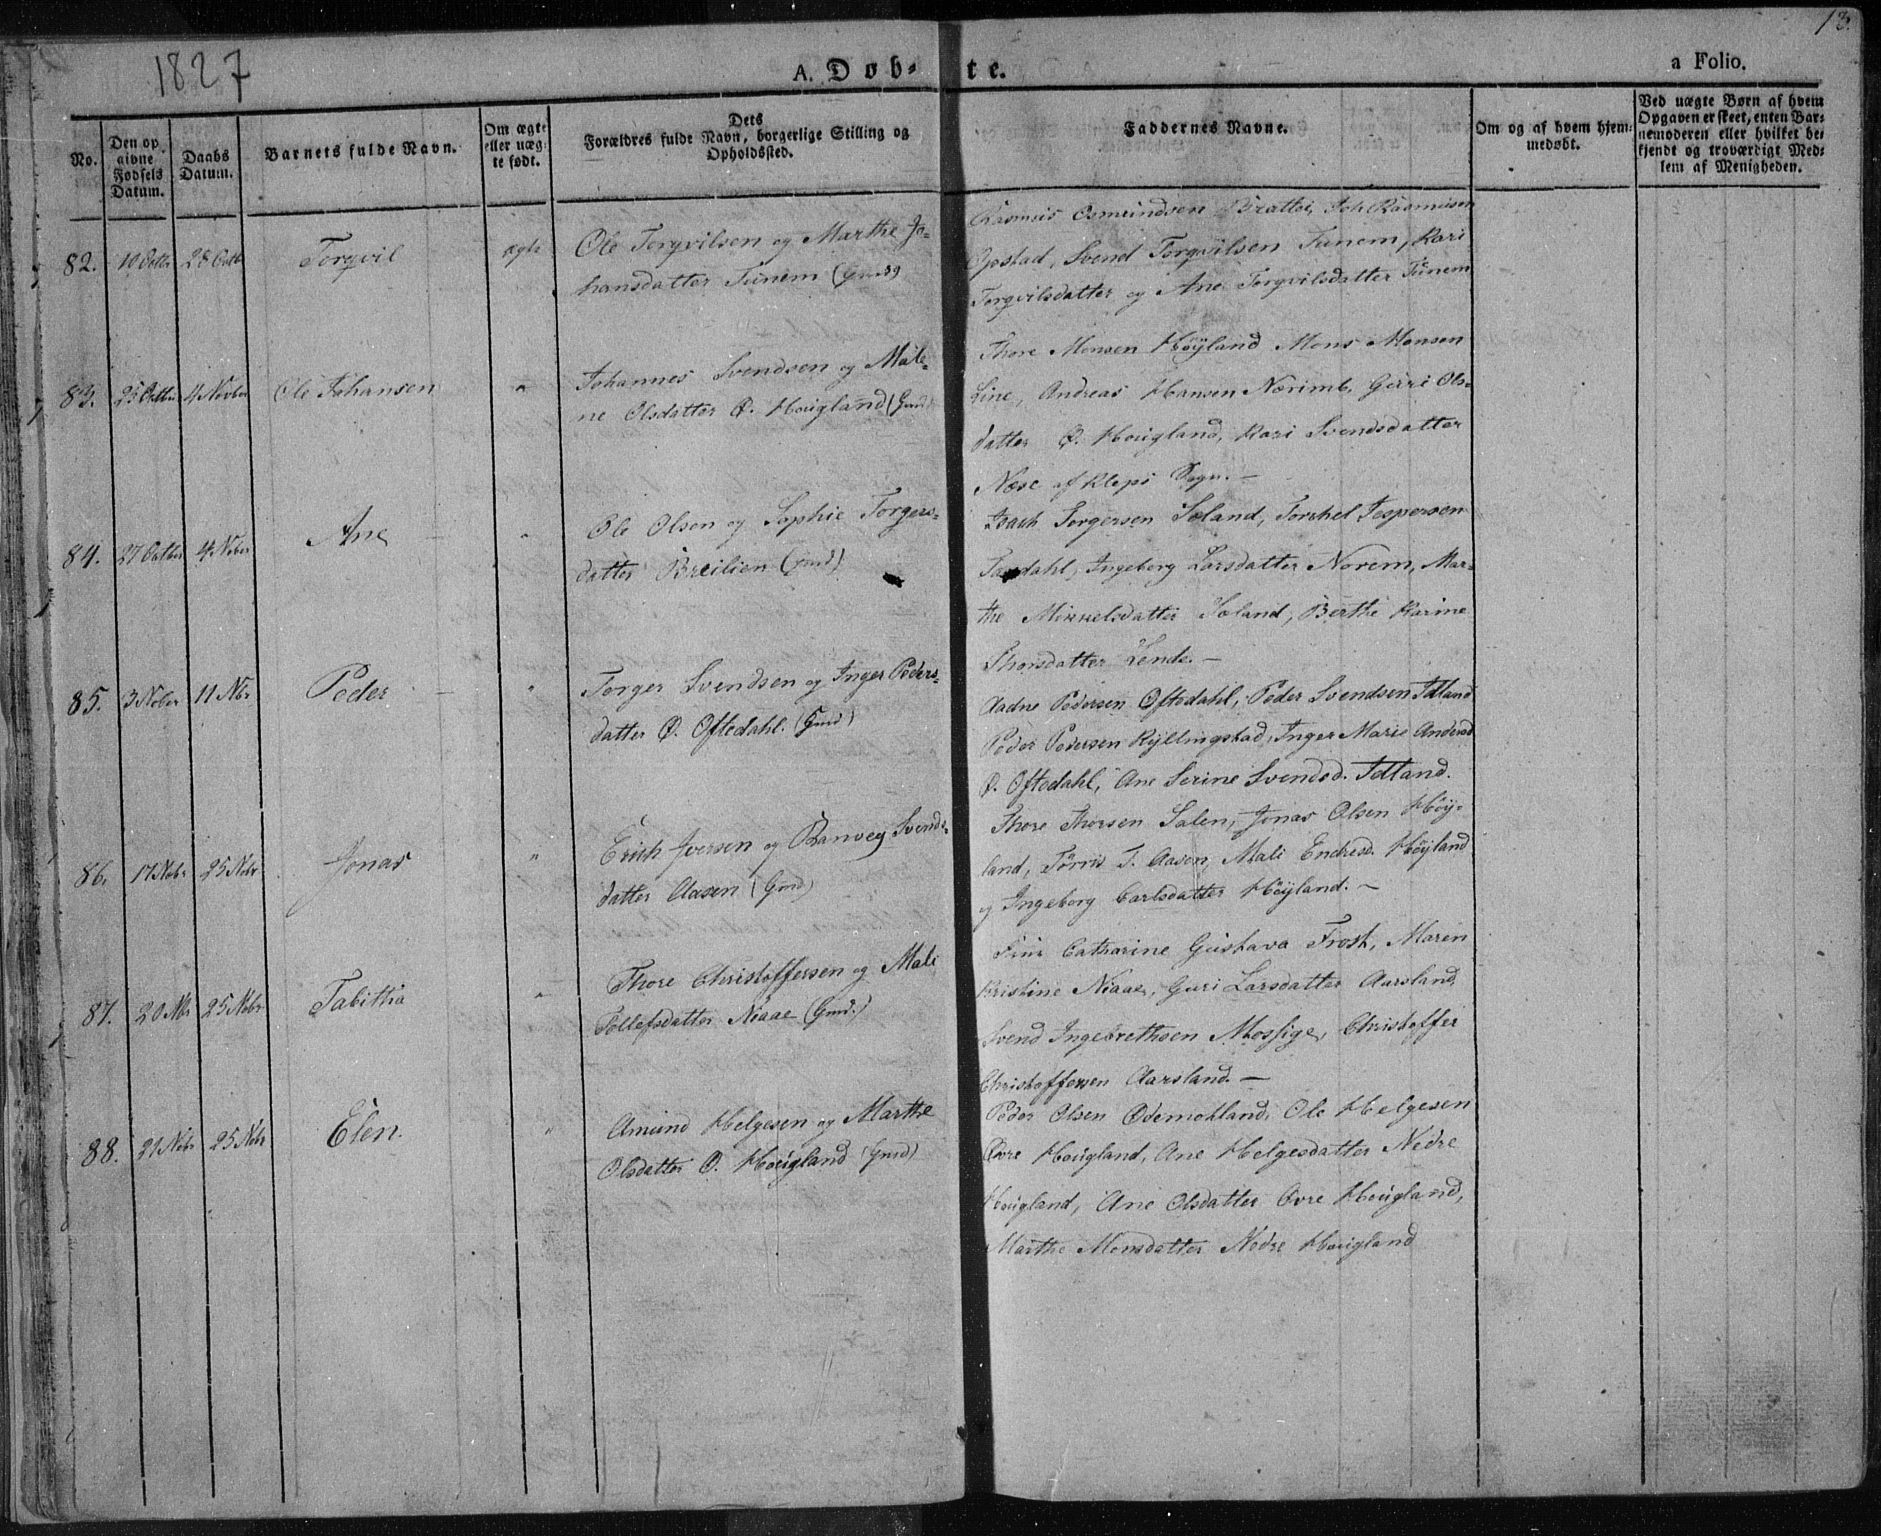 1827
13.
A. Døb-
te.
a Folio.
No.
Den op
givne
Fødsels
Datum.
Daabs
Datum.
Barnets fulde Navn.
Om ægte
eller uæg-
te født.
Dets
Forældres fulde Navn, borgerlige Stilling og
Opholdssted.
Faddernes Navne.
Om og af hvem hjem-
medøbt.
Ved uægte Børn af hvem
Opgaven er skeet, enten Bar-
nemoderen eller hvilket be-
kjendt og troværdigt Med-
lem af Menigheden.
82. 10 Octbr 28 Octb Torgvil ægte
Ole Torgvilsen og Marthe Jo-
hansdatter Tunem (Gmd)
Rasmus Osmundsen Brattei, Joh. Rasmusen
Opstad, Svend Torgvilsen Tunem, Kari
Torgvilsdatter og Ane Torgvilsdatter Tunem
83. 25 Octbr 4 Novber Ole Johansen "
Johannes Svendsen og Male-
ne Olsdatter Ø. Hougland (Gmd)
Thore Monsen Høyland Mons Monsen
Line, Andreas Hansen Nærimb, Gurri Ols-
datter Ø. Hougland, Kari Svendsdatter
Næse af Kleps Sogn. —
84. 27 Octber 4 Nober Ane — "
Ole Olsen og Sophie Torgers-
datter Breilien (Gmd)
Isach Torgersen Soland, Torchel Jespersen
Taxdahl, Ingeborg Larsdatter Norem, Mar-
the Mikkelsdatter Soland, Berthe Karine
Thorsdatter Lende. —
85. 3 Nober 11 Nbr Peder — "
Torger Svendsen og Inger Peders-
datter Ø. Oftedahl. (Gmd)
Aadne Pedersen Oftedahl, Peder Svendsen Idland
Peder Pedersen Kyllingstad, Inger Marie Andersd
Ø. Oftedahl, Ane Serine Svendsd. Idland.
86. 17 Nobr 25 Nobr Jonas "
Erich Iversen og Ranveg Svends-
datter Aasen (Gmd)
Thore Thorsen Salen, Jonas Olsen Høy-
land, Tørris T. Aasen, Mali Endresd. Høyland
og Ingeborg Carlsdatter Høyland. —
87. 20 Nbr 25 Nobr Tabitha "
Thore Christoffersen og Mali
Tollefsdatter Niaae (Gmd.)
Catharine Gustava Frost, Maren
Kristine Niaae, Guri Larsdatter Aarsland,
Svend Ingebrethsen Mossige, Christoffer
Christoffersen Aarsland. —
88. 21 Nobr 25 Nobr Elen. "
Amund Helgesen og Marthe
Olsdatter Ø. Hougland (Gmd)
Peder Olsen Ødemotland, Ole Helgesen
Øvre Hougland, Ane Helgesdatter Nedre
Hougland, Ane Olsdatter Øvre Hougland,
Marthe Monsdatter Nedre Hougland